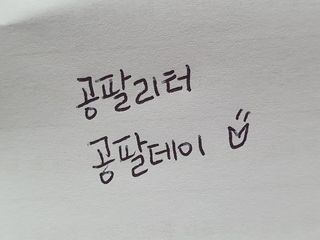 공팔리터
공팔데이